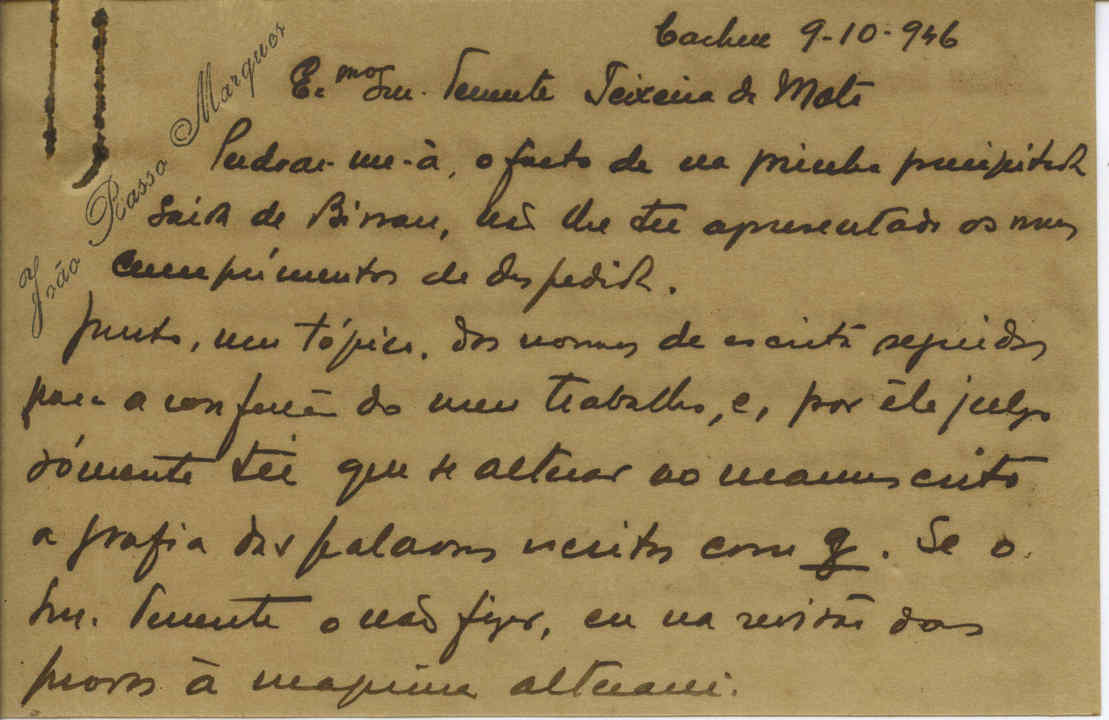 João Basso Marques
Cacheu 9-10-946
Exmo Snr. Tenente Teixeira da Mota
Perdoar-me-à, o facto de na minha precipitada
saida de Bissau, não lhe ter apresentado os meus
cumprimentos de despedida.
Junto, um tópico, das normas de escrita seguidas
para a confecção do meu trabalho, e, por êle julgo
sómente ter que se alterar no manuscrito
a grafia das palavras escritas com q. Se o
Snr. Tenente o não fizer, eu na revisão das
provas à maquina alterarei.